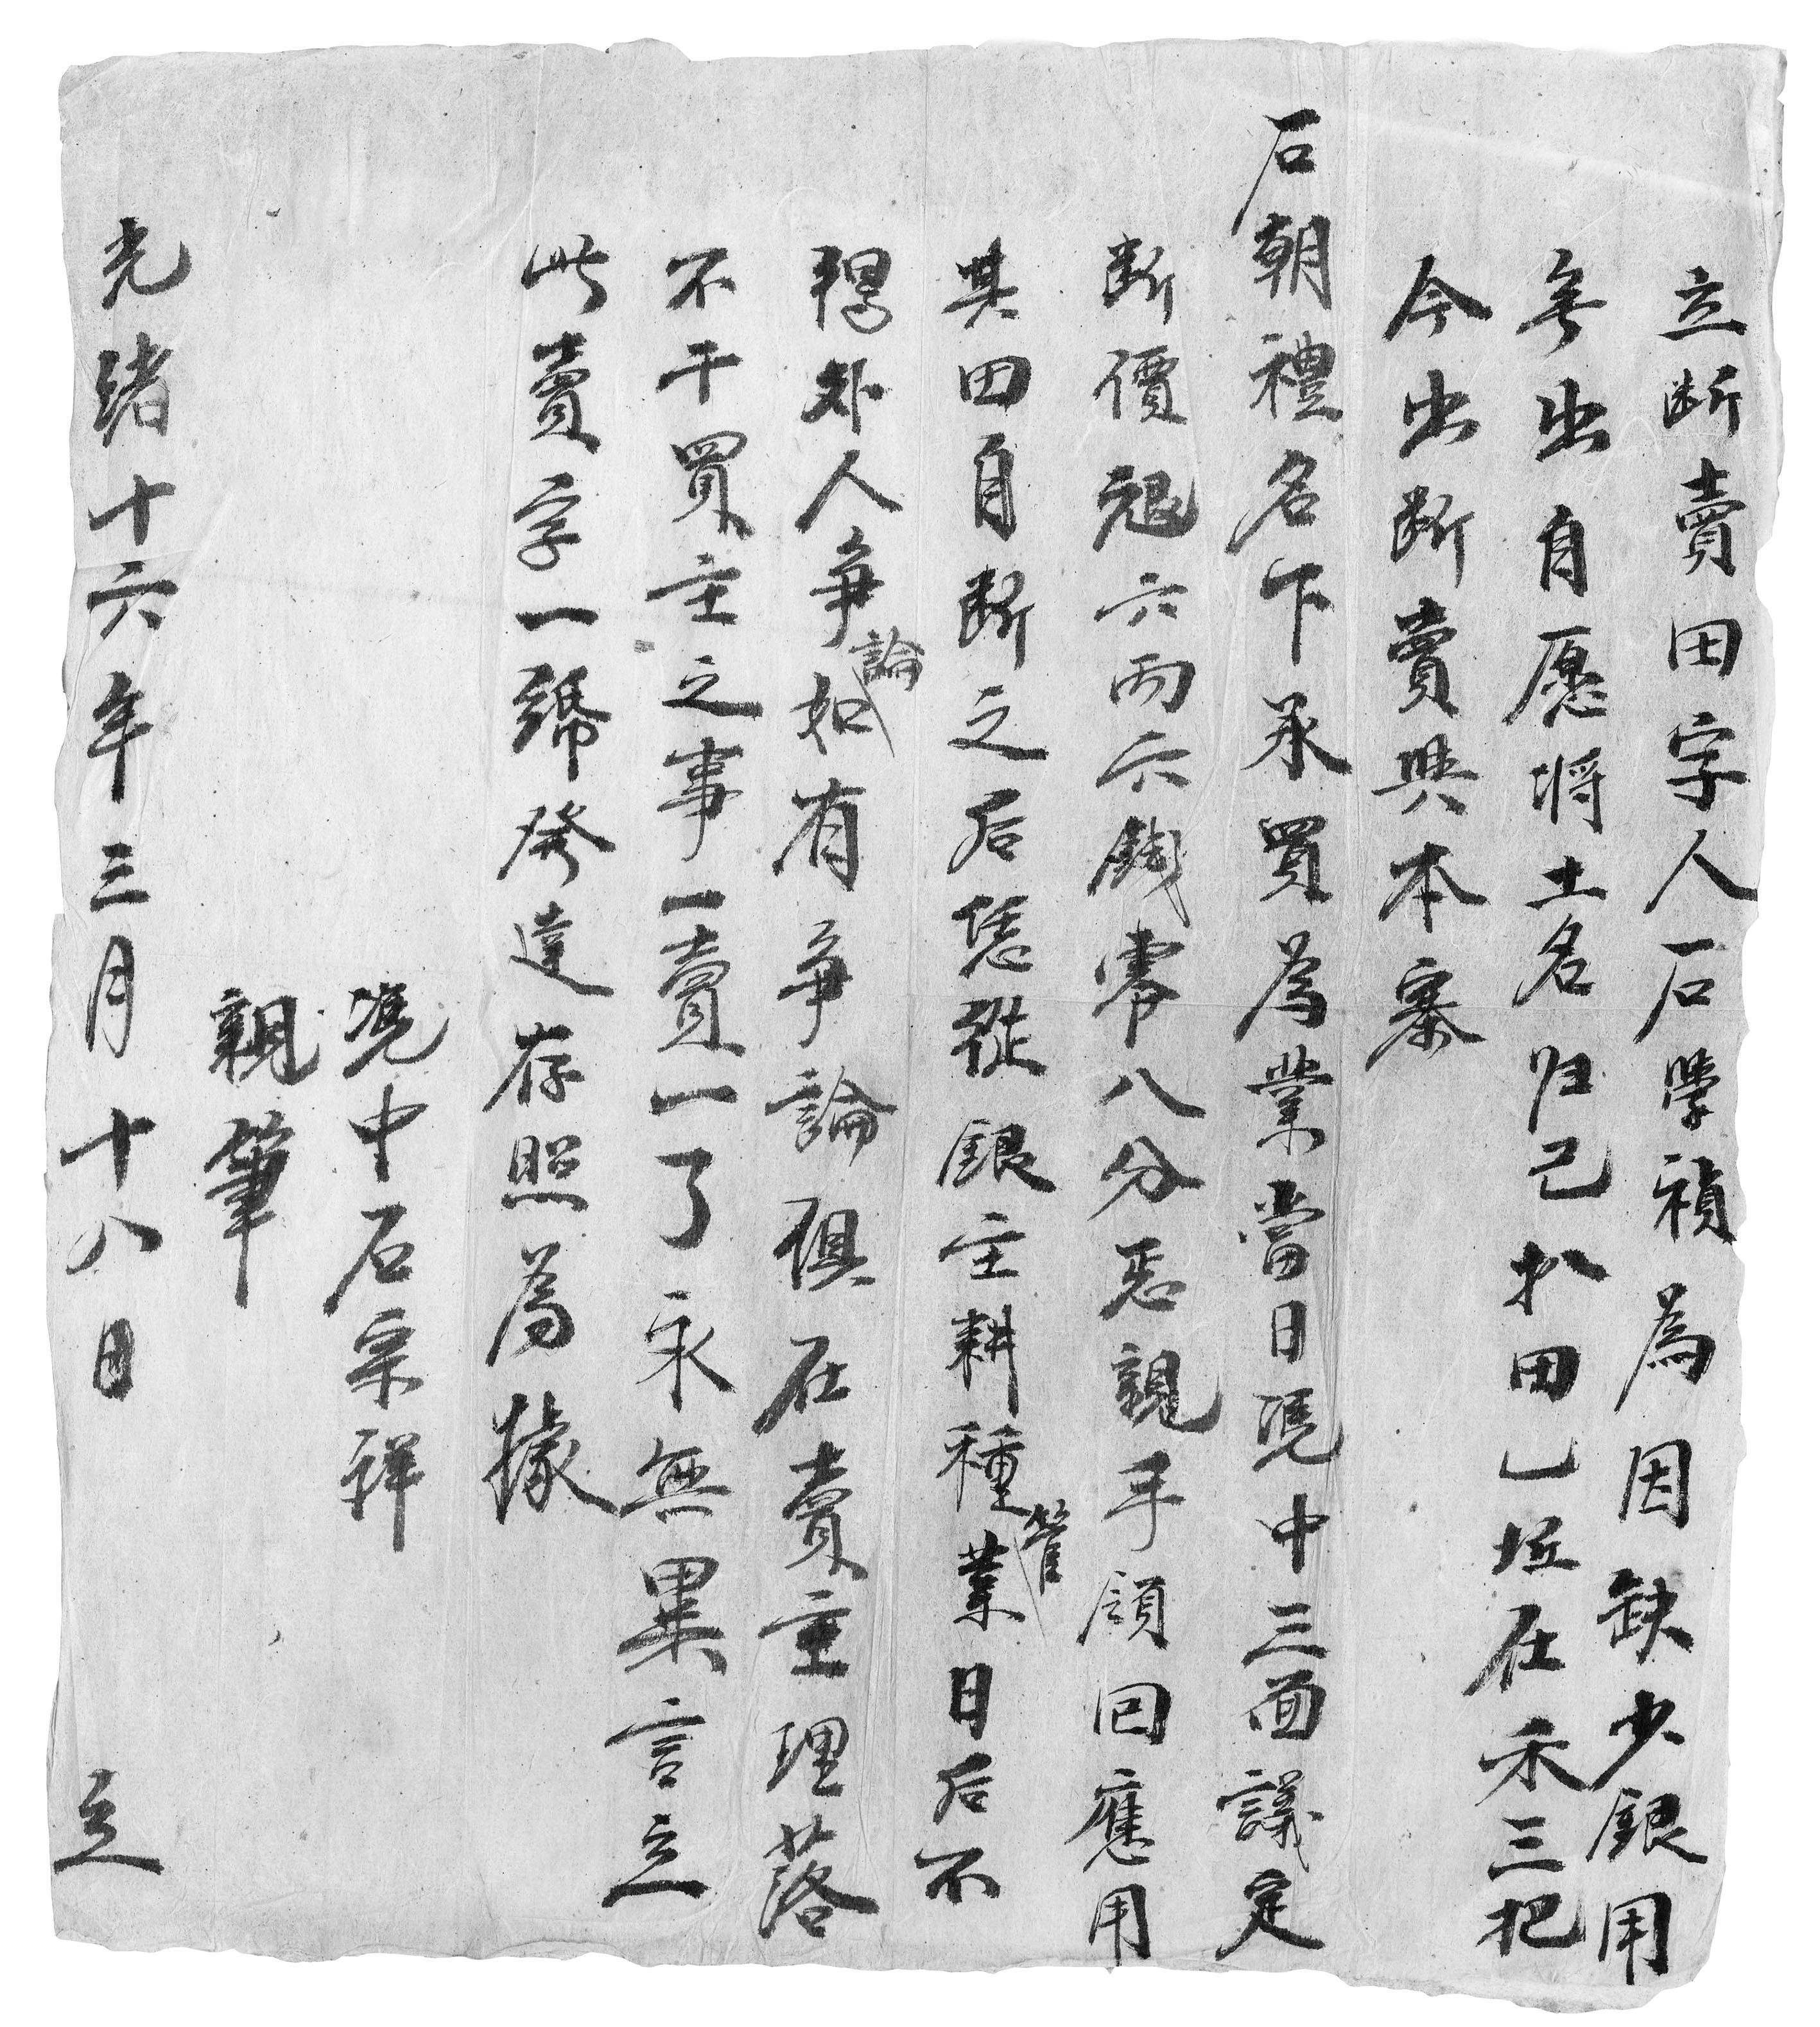 立断賣田字人石學禎為因缺少銀用
無出自愿將土名归己扒田乚坵在禾三把
今出断賣與本寨
石朝禮名下承買為業當日凴中三面議定
断價銀六両六錢零八分恁親手領回應用
其田自断之后恁従銀主耕種管業日后不
得外人争論如有争論俱在賣主理落
不干買主之事一賣一了永無異言立
此賣字一帋發達存照為據
凴中石宗祥
親筆
光緒十六年三月十八日立